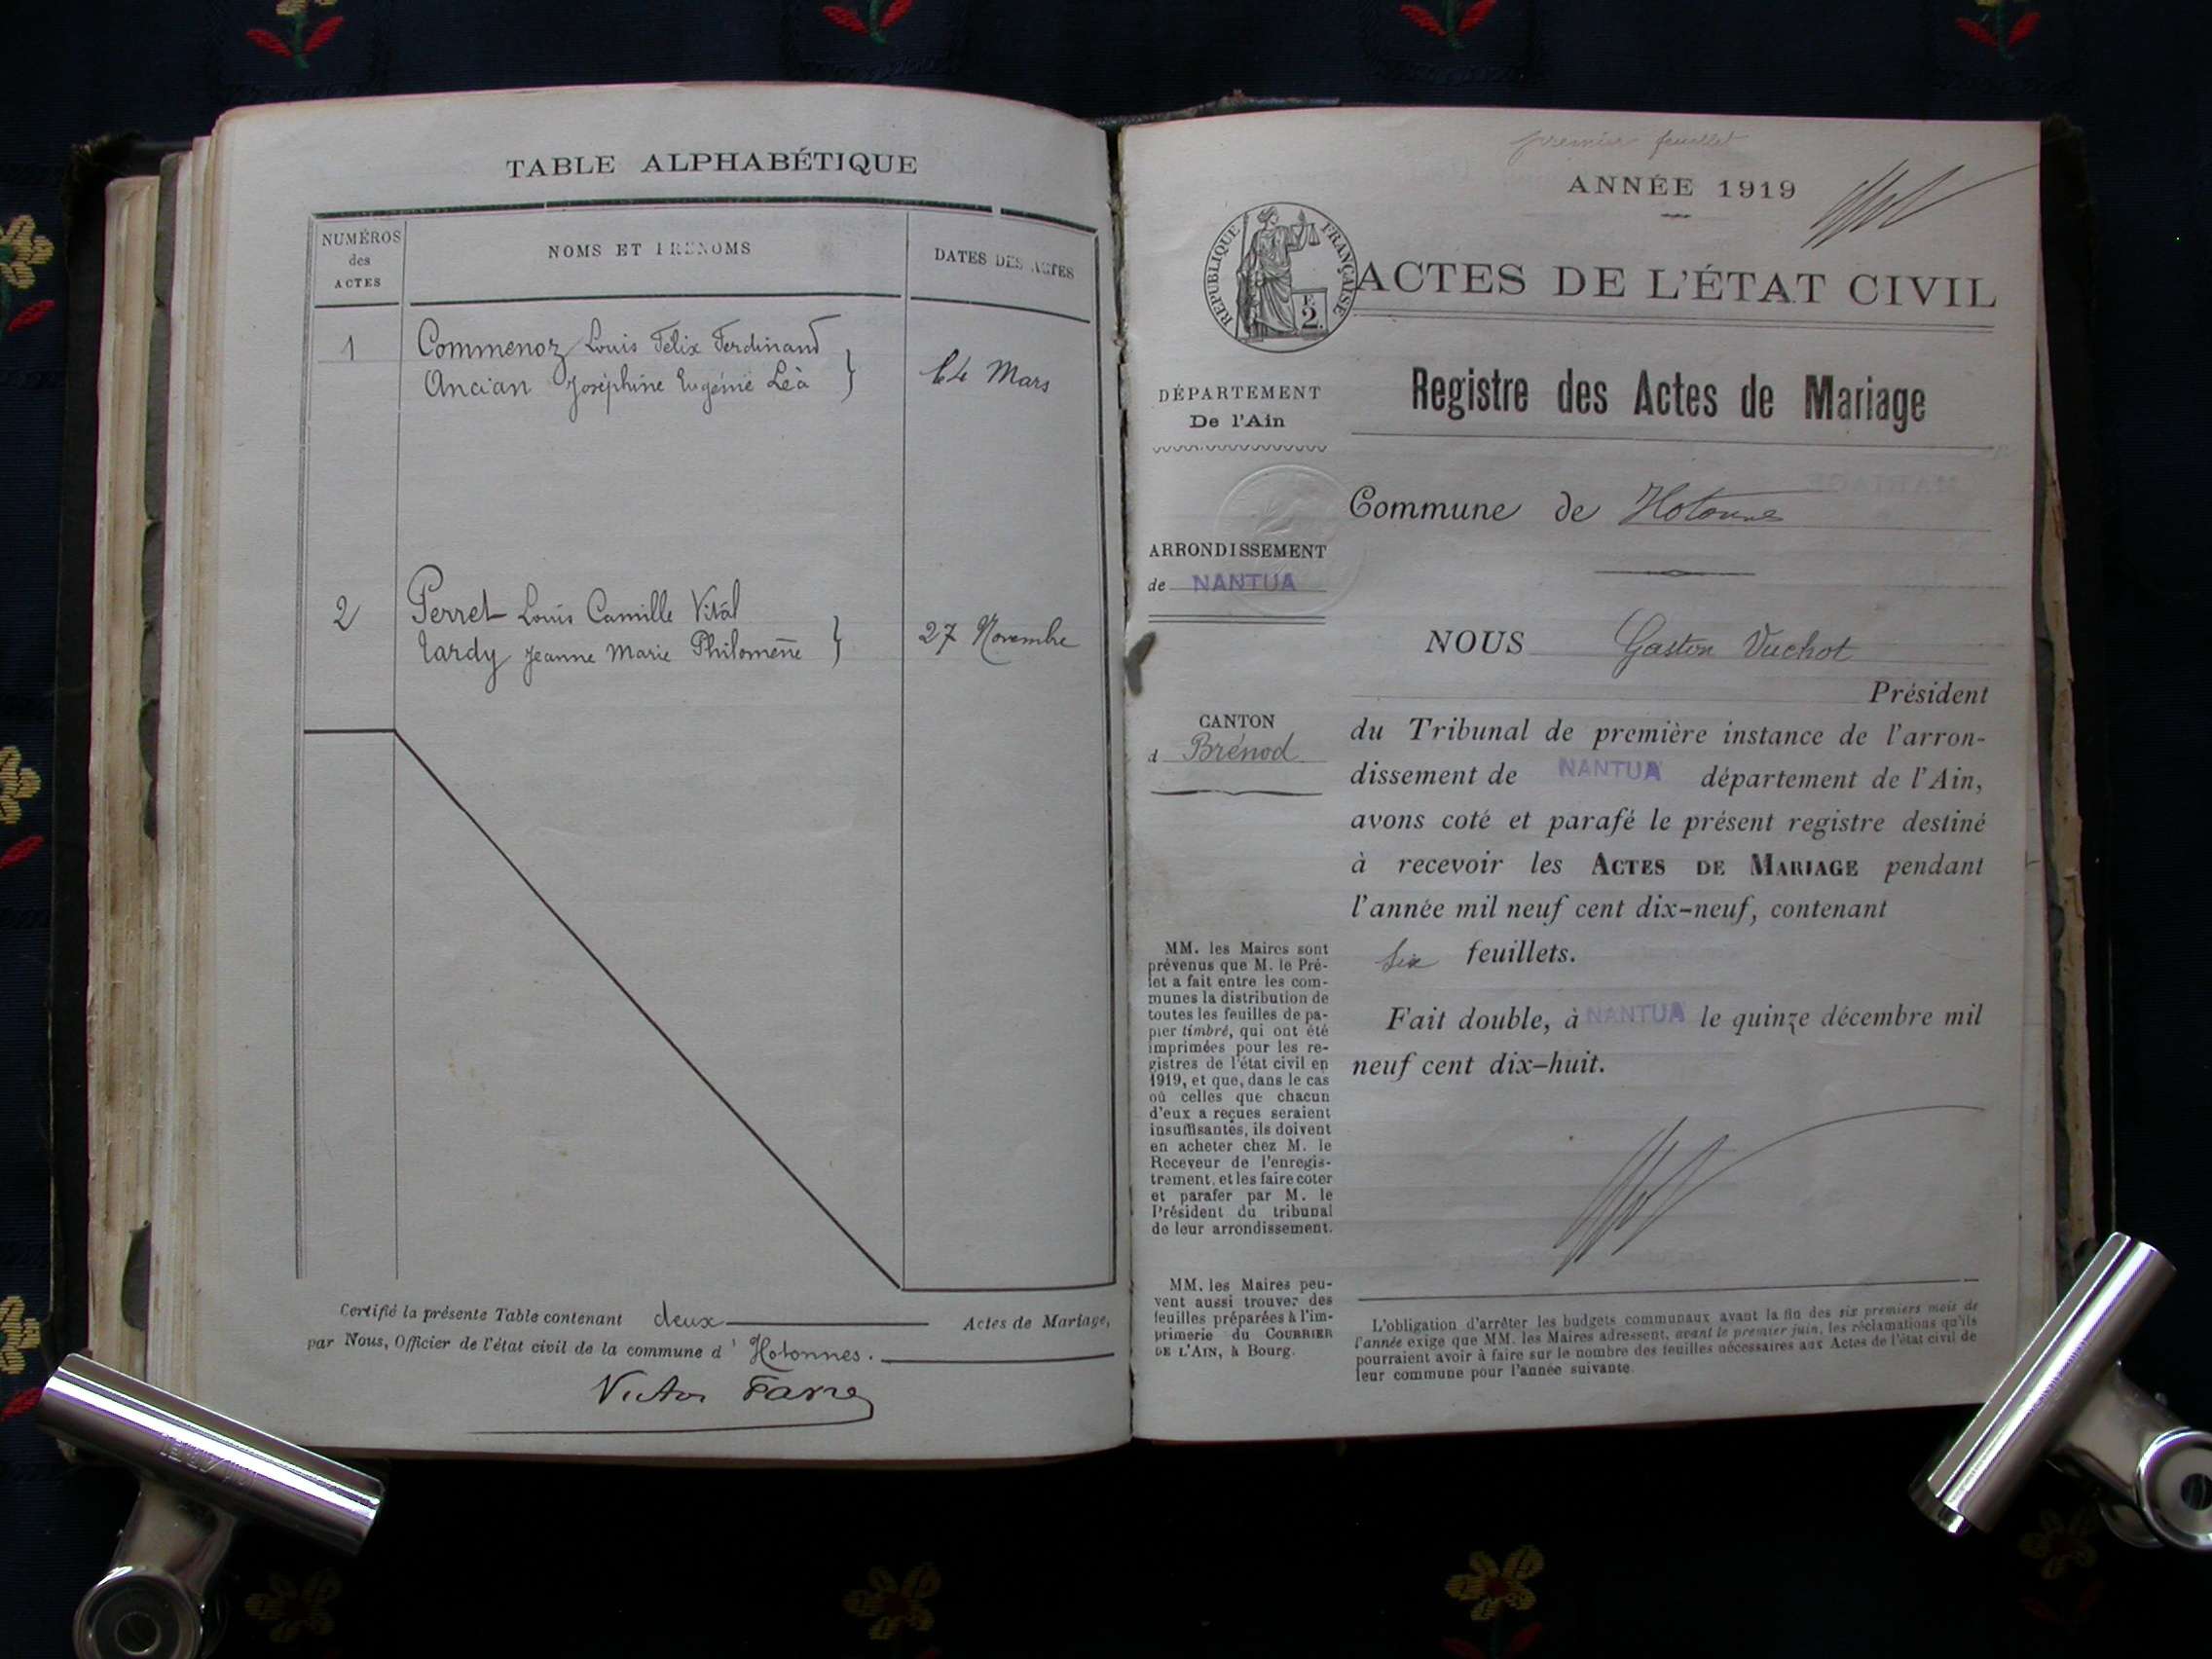 TABLE ALPHABÉTIQUE
NUMÉROS
des
ACTES
NOMS ET PRÉNOMS
DATES DES ACTES
1
Commenoz Louis Félix Ferdinand
Ancian Joséphine Eugénie Léà
Mars
2
Perret Louis Camille Vital
Tardy Jeanne Marie Philomène
27 Novembre
Certifié la présente Table contenant deux Actes de Mariage,
par Nous, Officier de l'état civil de la commune d' Hotonnes.
Victor
premier feuillet
ANNÉE 1919
RÉPUBLIQUE FRANÇAISE
F.
2.
ACTES DE L'ÉTAT CIVIL
DÉPARTEMENT
De l'Ain
Registre des Actes de Mariage
Commune de Hotonnes
ARRONDISSEMENT
de NANTUA
NOUS Gaston Vuchot
Président
CANTON
d Brénod
du Tribunal de première instance de l'arron-
dissement de NANTUA département de l'Ain,
avons coté et parafé le présent registre destiné
à recevoir les ACTES DE MARIAGE pendant
l'année mil neuf cent dix-neuf, contenant
six feuillets.
Fait double, à NANTUA le quinze décembre mil
neuf cent dix-huit.
MM. les Maires sont
prévenus que M. le Pré-
fet a fait entre les com-
munes la distribution de
toutes les feuilles de pa-
pier timbré, qui ont été
imprimées pour les re-
gistres de l'état civil en
1919, et que, dans le cas
où celles que chacun
d'eux a reçues seraient
insuffisantes, ils doivent
en acheter chez M. le
Receveur de l'enregis-
trement, et les faire coter
et parafer par M. le
Président du tribunal
de leur arrondissement.
MM. les Maires peu-
vent aussi trouver des
feuilles préparées à l'im-
primerie du COURRIER
DE L'AIN, à Bourg.
L'obligation d'arrêter les budgets communaux avant la fin des six premiers mois de
l'année exige que MM. les Maires adressent, avant le premier juin, les réclamations qu'ils
pourraient avoir à faire sur le nombre des feuilles nécessaires aux Actes de l'état civil de
leur commune pour l'année suivante.